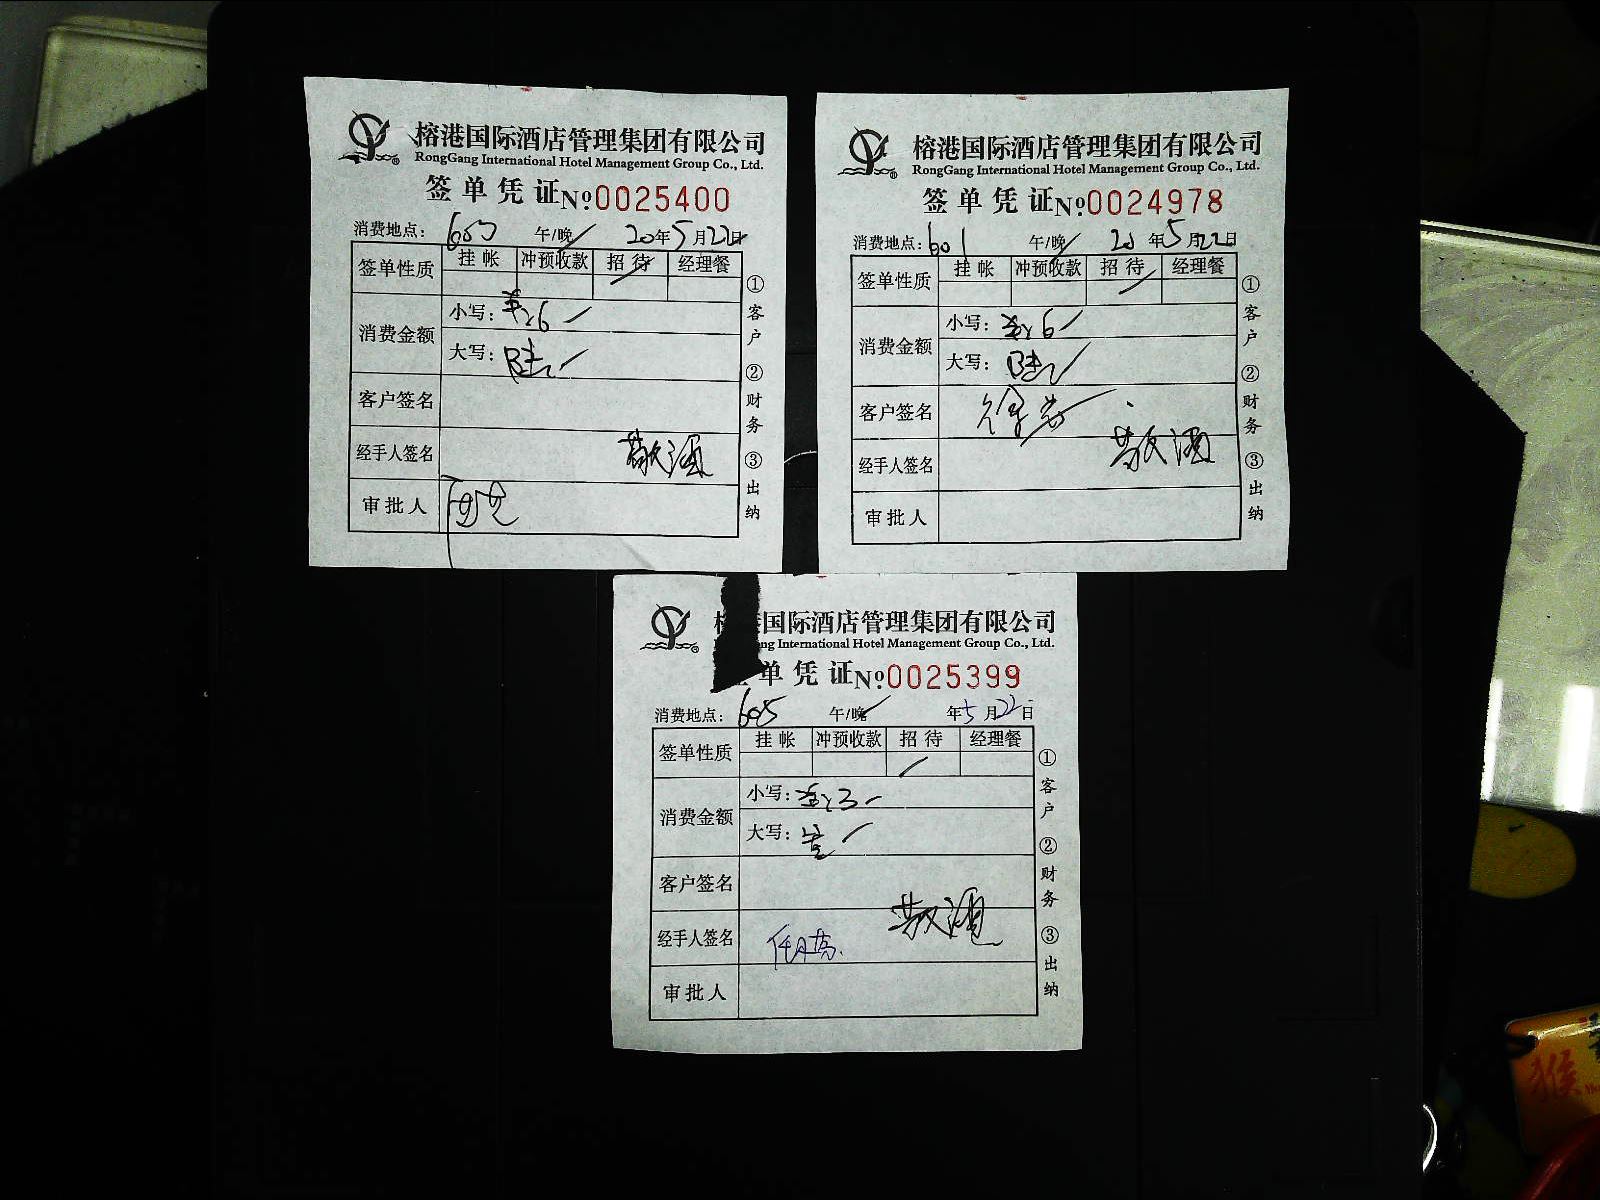 榕港国际酒店管理集团有限公司
RongGang International Hotel Management Group Co., Ltd.
签单凭证 №0025400
消费地点: 午/晚 20年5月22日
签单性质 挂帐 冲预收款 招待 经理餐
消费金额 小写:
大写: 陆
客户签名
经手人签名 敬酒
审批人
①客户 ②财务 ③出纳
榕港国际酒店管理集团有限公司
RongGang International Hotel Management Group Co., Ltd.
签单凭证 №0024978
消费地点: 601 午/晚 20年5月22日
签单性质 挂帐 冲预收款 招待 经理餐
消费金额 小写:
大写: 陆
客户签名
经手人签名 敬酒
审批人
①客户 ②财务 ③出纳
国际酒店管理集团有限公司
International Hotel Management Group Co., Ltd.
单凭证 №0025399
消费地点: 605 午/晚 年5月22日
签单性质 挂帐 冲预收款 招待 经理餐
消费金额 小写:
大写:
客户签名
经手人签名 敬酒
审批人
①客户 ②财务 ③出纳
猴